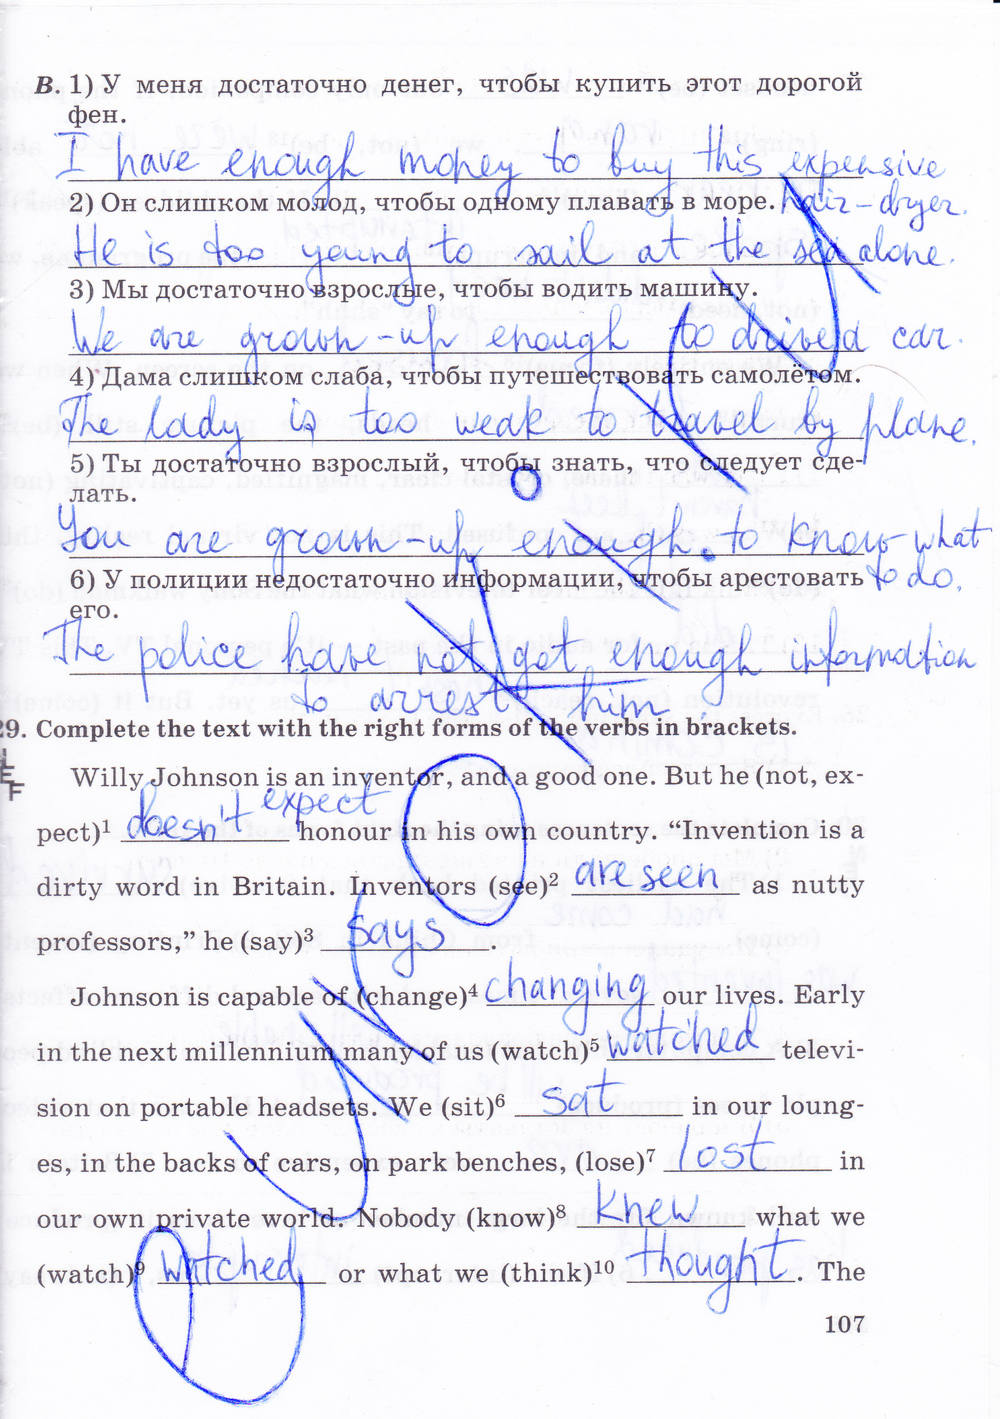 B. 1) У меня достаточно денег, чтобы купить этот дорогой
фен.
I have enough money to buy this expensive
2) Он слишком молод, чтобы одному плавать в море. hair-dryer.
He is too young to sail at the sea alone.
3) Мы достаточно взрослые, чтобы водить машину.
We are grown-up enough to drive a car.
4) Дама слишком слаба, чтобы путешествовать самолётом.
The lady is too weak to travel by plane.
5) Ты достаточно взрослый, чтобы знать, что следует сде-
лать.
You are grown-up enough. to know what
6) У полиции недостаточно информации, чтобы арестовать to do.
его.
The police have not got enough information
to arrest him.
29. Complete the text with the right forms of the verbs in brackets.
Willy Johnson is an inventor, and a good one. But he (not, ex-
pect)1 doesn't expect honour in his own country. “Invention is a
dirty word in Britain. Inventors (see)2 are seen as nutty
professors,” he (say)3 says.
Johnson is capable of (change)4 changing our lives. Early
in the next millennium many of us (watch)5 watched televi-
sion on portable headsets. We (sit)6 sat in our loung-
es, in the backs of cars, on park benches, (lose)7 lost in
our own private world. Nobody (know)8 knew what we
(watch)9 watched or what we (think)10 thought. The
107